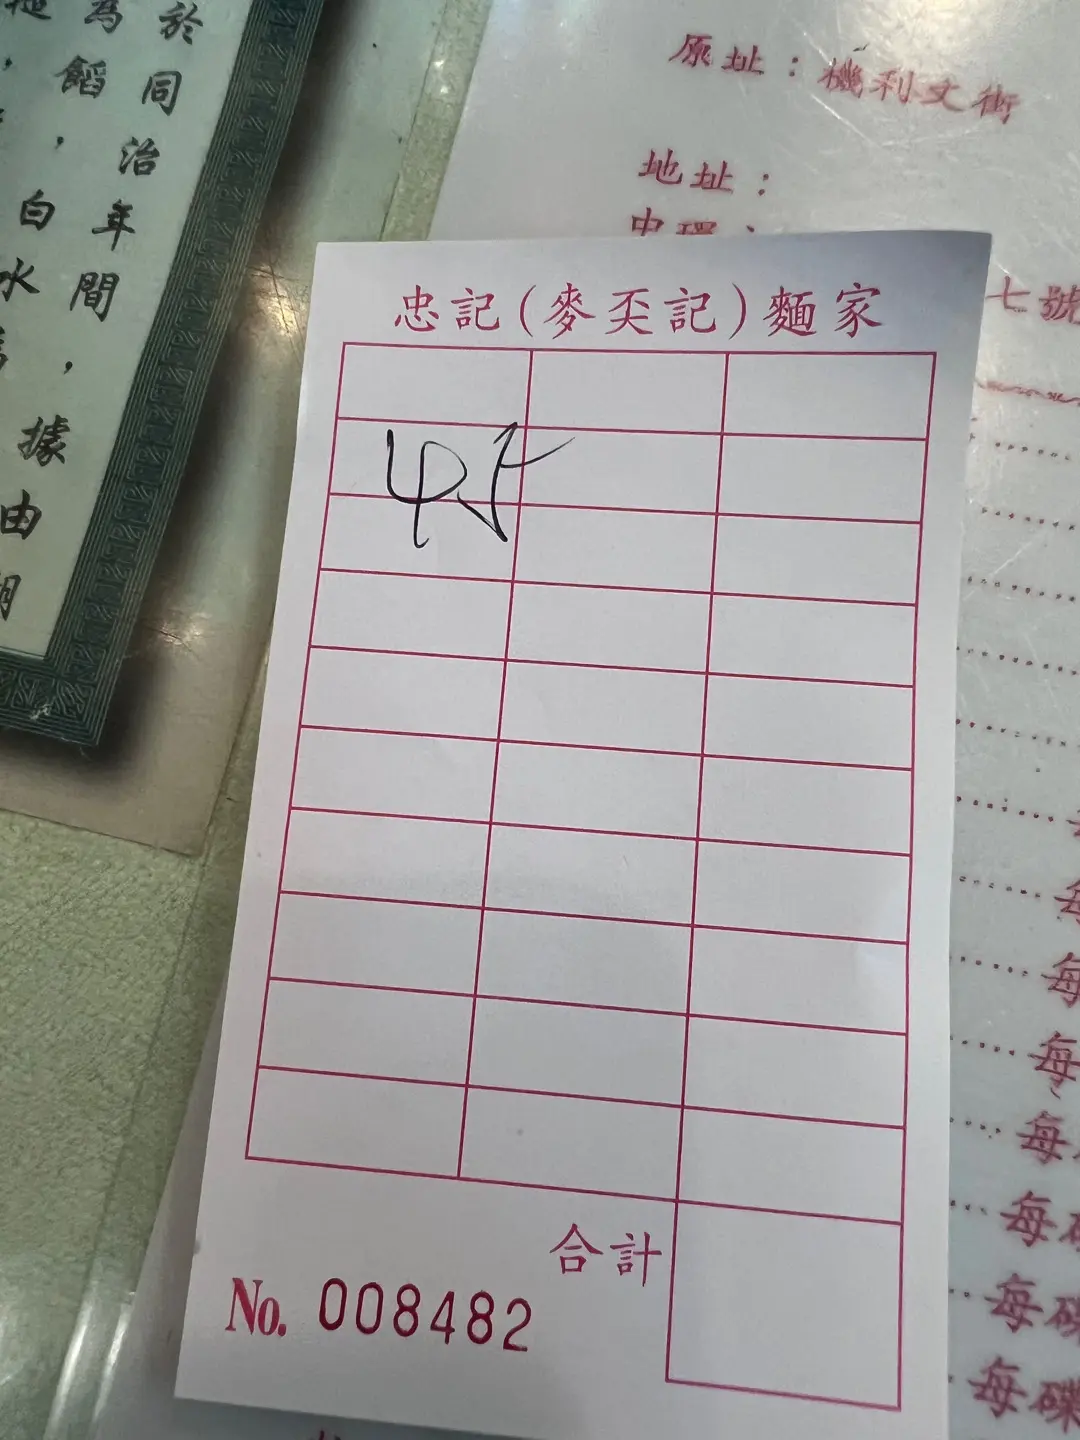 原址：機利文街
地址：
中環：
七號
忠記(麥奀記)麵家
合計
No. 008482
於同治年間，據
為餡，
白水
由
每
每
每
每
每
每碟
每碟